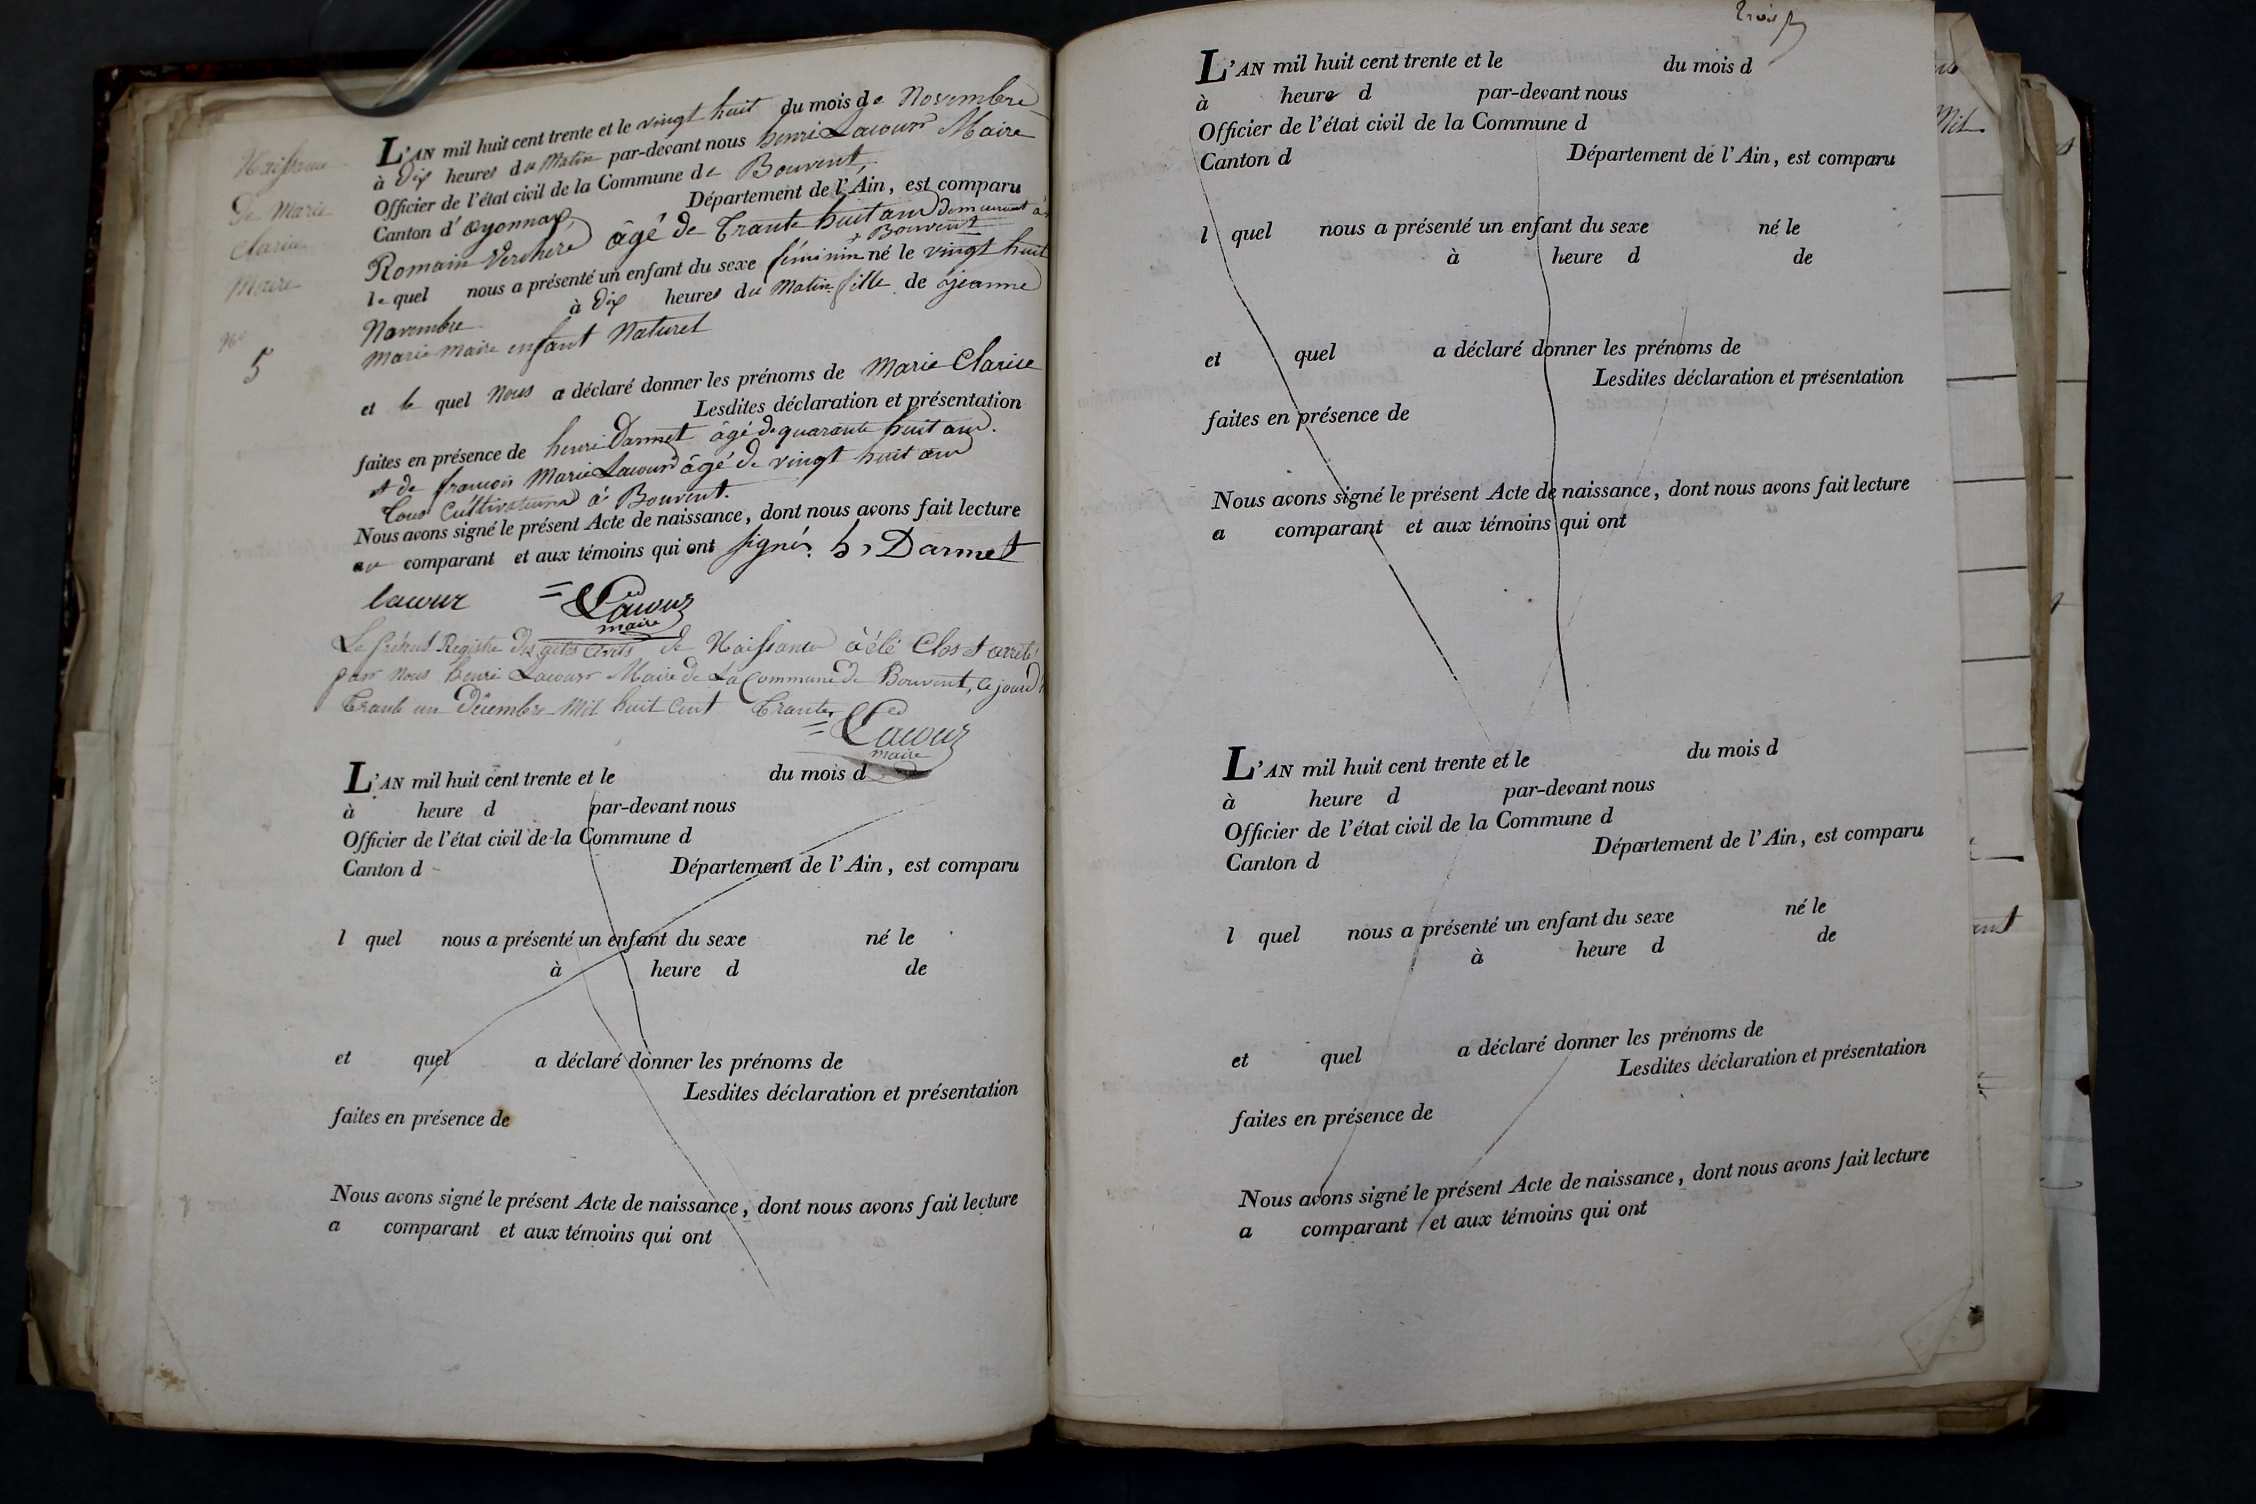 Naissance
de Marie
Clarice
Maire
No
5
L'AN mil huit cent trente et le vingt huit du mois de Novembre
à Dix heures du Matin par-devant nous henri Lacour Maire
Officier de l'état civil de la Commune de Bouvent,
Canton d'oyonnax, Département de l'Ain, est comparu
Romain Verchere âgé de Trante huit ans demeurant à
Bouvent
le quel nous a présenté un enfant du sexe féminin né le vingt huit
Novembre à Dix heures du Matin fille de jeanne
marie maire enfant Naturel
et le quel Nous a déclaré donner les prénoms de Marie Clarice
Lesdites déclaration et présentation
faites en présence de henri Darmet âgé de quarante huit ans.
et de françois Marie Lacour âgé de vingt huit ans
Tous Cultivateurs à Bouvent.
Nous avons signé le présent Acte de naissance, dont nous avons fait lecture
au comparant et aux témoins qui ont signés. h, Darmet
lacour Lacour
maire
Le présent Registre des actes de Naissance à été Clos et arrêté
par Nous henri Lacour Maire de La Commune de Bouvent, ce jourd
Trante un Décembre Mil huit Cent Trante,
Lacour
maire
L'AN mil huit cent trente et le du mois d
à heure d par-devant nous
Officier de l'état civil de la Commune d
Canton d Département de l'Ain, est comparu
l quel nous a présenté un enfant du sexe né le
à heure d de
et quel a déclaré donner les prénoms de
Lesdites déclaration et présentation
faites en présence de
Nous avons signé le présent Acte de naissance, dont nous avons fait lecture
a comparant et aux témoins qui ont
trois
L'AN mil huit cent trente et le du mois d
à heure d par-devant nous
Officier de l'état civil de la Commune d
Canton d Département de l'Ain, est comparu
l quel nous a présenté un enfant du sexe né le
à heure d de
et quel a déclaré donner les prénoms de
Lesdites déclaration et présentation
faites en présence de
Nous avons signé le présent Acte de naissance, dont nous avons fait lecture
a comparant et aux témoins qui ont
L'AN mil huit cent trente et le du mois d
à heure d par-devant nous
Officier de l'état civil de la Commune d
Canton d Département de l'Ain, est comparu
l quel nous a présenté un enfant du sexe né le
à heure d de
et quel a déclaré donner les prénoms de
Lesdites déclaration et présentation
faites en présence de
Nous avons signé le présent Acte de naissance, dont nous avons fait lecture
a comparant et aux témoins qui ont